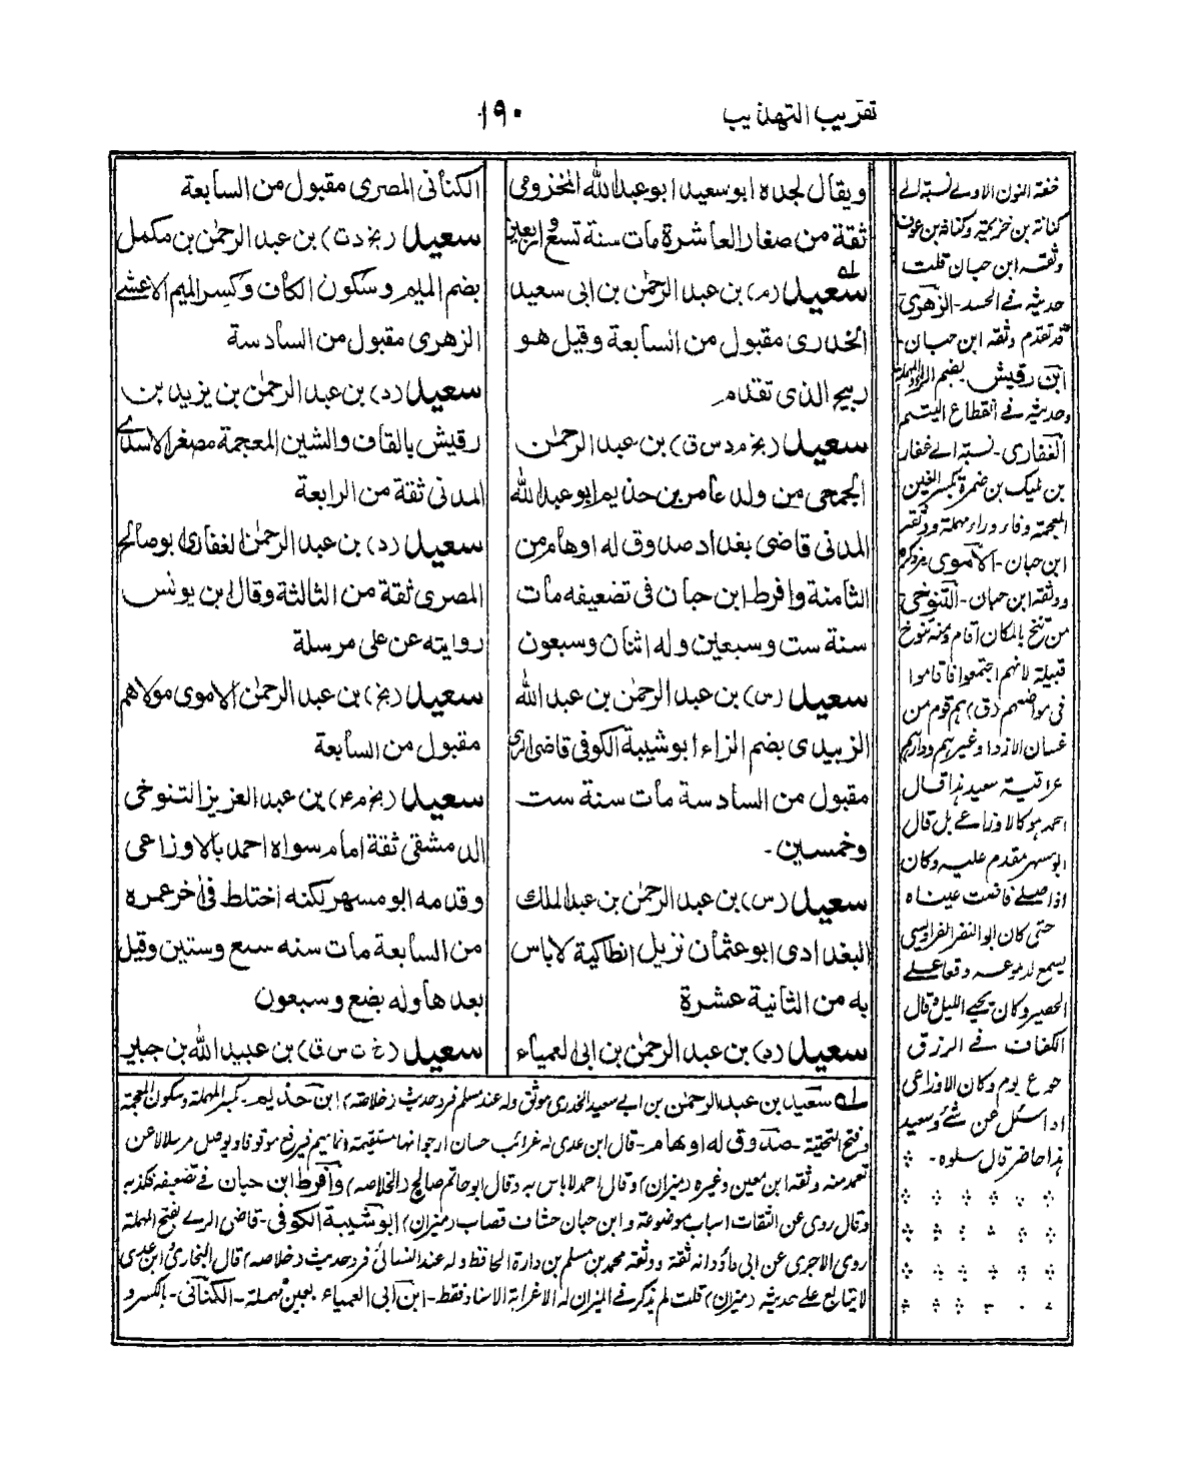 تقريب التهذيب
١٩٠
ويقال لجده ابو سعيد ابو عبد الله المخزومى
ثقة من صغار العاشرة مات سنة تسع واربعين
سعيد (م) بن عبد الرحمٰن بن ابى سعيد
الخدرى مقبول من السابعة وقيل هو
ربيح الذى تقدم
سعيد (بخ م د س ق) بن عبد الرحمٰن
الجمحى من ولد عامر بن حذيم ابو عبد الله
المدنى قاضى بغداد صدوق له اوهام من
الثامنة وافرط ابن حبان فى تضعيفه مات
سنة ست وسبعين وله اثنان وسبعون
سعيد (س) بن عبد الرحمٰن بن عبد الله
الزبيدى بضم الزاء ابو شيبة الكوفى قاضى الرى
مقبول من السادسة مات سنة ست
وخمسين -
سعيد (س) بن عبد الرحمٰن بن عبد الملك
البغدادى ابو عثمان نزيل انطاكية لاباس
به من الثانية عشرة
سعيد (د) بن عبد الرحمٰن بن ابى العمياء
الكنانى المصرى مقبول من السابعة
سعيد (بخ د ت) بن عبد الرحمٰن بن مكمل
بضم الميم وسكون الكاف وكسر الميم الاعشے
الزهرى مقبول من السادسة
سعيد (د) بن عبد الرحمٰن بن يزيد بن
رقيش بالقاف والشين المعجمة مصغر الاسدے
المدنى ثقة من الرابعة
سعيد (د) بن عبد الرحمٰن الغفارى ابو صالح
المصرى ثقة من الثالثة وقال ابن يونس
روايته عن على مرسلة
سعيد (بخ) بن عبد الرحمٰن الاموى مولاهم
مقبول من السابعة
سعيد (بخ م عه) بن عبد العزيز التنوخى
الدمشقى ثقة امام سواه احمد بالاوزاعى
وقدمه ابو مسهر لكنه اختلط فى اٰخر عمره
من السابعة مات سنه سبع وستين وقيل
بعدها وله بضع وسبعون
سعيد (خ ت س ق) بن عبيد الله بن جبير
لہ سعيد بن عبد الرحمٰن بن ابے سعيد الخدرى موثق وله عند مسلم فرد حديث (خلاصه) ابن حذيم - بكسر المهملة وسكون المعجمة
وفتح التحتية - صدوق له اوهام - قال ابن عدى له غرائب حسان ارجو انها مستقيمة وانما يهم فيرفع موقوفا ويوصل مرسلا لا عن
تعمد منه وثقه ابن معين وغيره (ميزان) وقال احمد لاباس به وقال ابو حاتم صالح (الخلاصه) وافرط ابن حبان فے تضعيفه
وقال روى عن الثقات اسباب موضوعة و ابن حبان قصاب (ميزان) ابو شيبة الكوفى - قاضى الرے بفتح المهملة
روى الاجرى عن ابى داؤد انه ثقة ووثقه محمد بن مسلم بن دارة الحافظ وله عند النسائى فرد حديث (خلاصه) قال البخارى ابن عدى
لا يتابع على حديثه (ميزان) قلت لم يذكر فے الميزان له الا غرابة الاسناد فقط - ابن ابى العمياء بعين مهملة - الكنانى - بالكسر و
خفة النون الاولے نسبة الے
كنانة بن خزيمة وكنانة بن عوف
وثقه ابن حبان قلت
حديثه فے الحسد - الزهرى
قد تقدم وثقه ابن حبان -
ابن رقيش بضم الراء
وحديثه فے انقطاع اليتم
الغفارى - نسبة الے غفار
بن مليك بن ضمرة بكسر الغين
المعجمة وفاء وراء مهملة ووثقه
ابن حبان - الاموى
ووثقه ابن حبان - التنوخى
من تنخ بالمكان اقام ومنه تنوخ
قبيلة لانهم اجتمعوا فاقاموا
فى مواضعهم (ق) هم قوم من
غسان الازد او غيرهم ودارهم
عراقية سعيد هذا قال
احمد هو كالاوزاعے بل قال
ابو مسهر مقدم عليه وكان
اذا صلے فاضت عيناه
حتى كان ابو النضر الفراديسى
يسمع لدموعه وقعا علے
الحصير وكان يحيے الليل وقال
الكفاف فے الرزق
جوع يوم وكان الاوزاعى
اذا سئل عن شئے وسعيد
هذا حاضر قال سلوه -